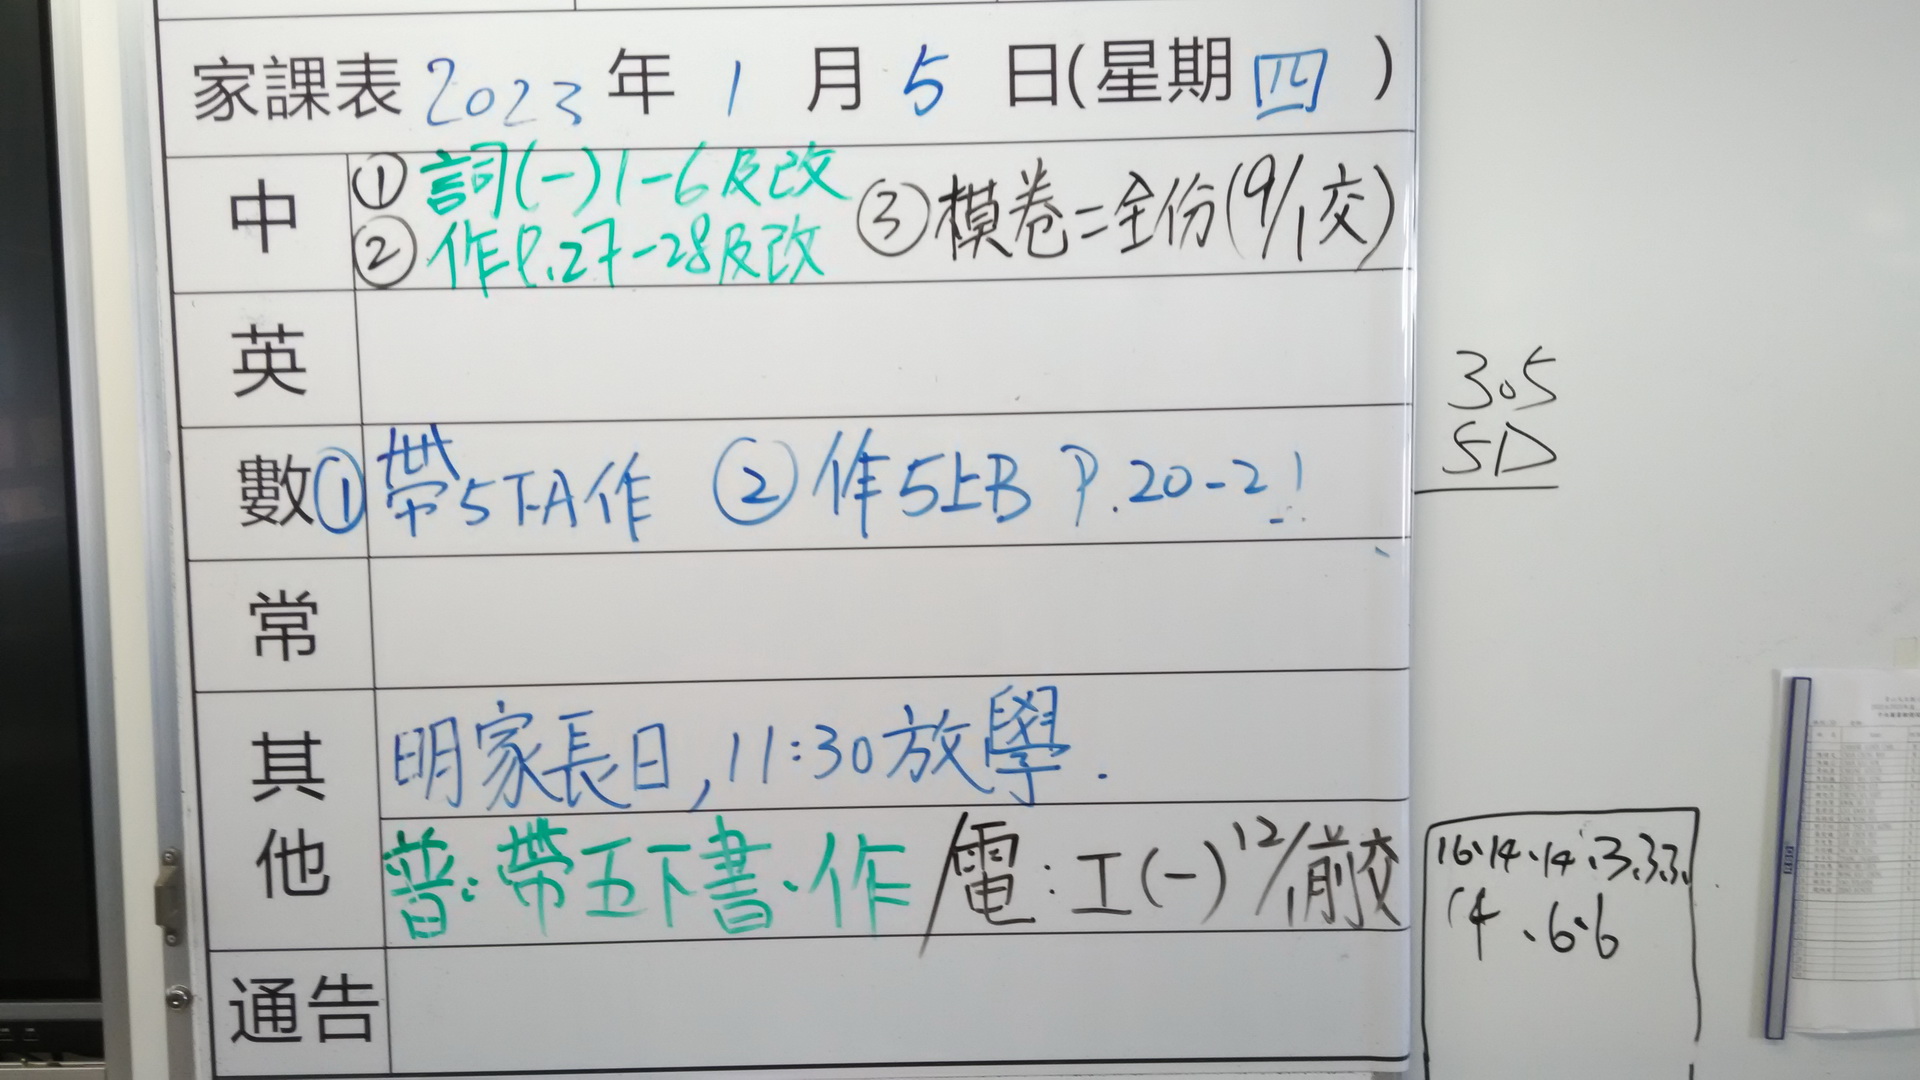 家課表 2023 年 1 月 5 日(星期四)
中
① 詞(一)1-6及改
② 作P.27-28及改
③ 模卷二全份(9/1交)
英
數
① 帶5T-A作 ② 作5上B P.20-21
常
其他
明家長日, 11:30放學.
普:帶五下書、作/電:工(一)12/1前交
通告
305
5D
16、14、14、3、3、3、
14、6、6